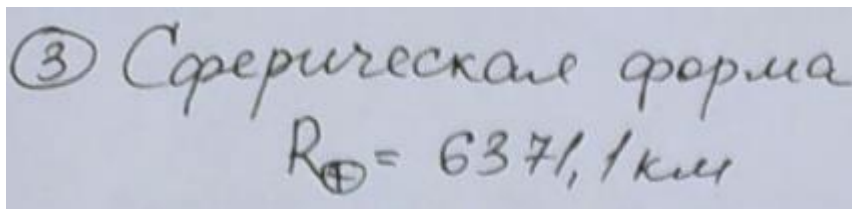 ③ Сферическая форма
R⊕ = 6371,1 км